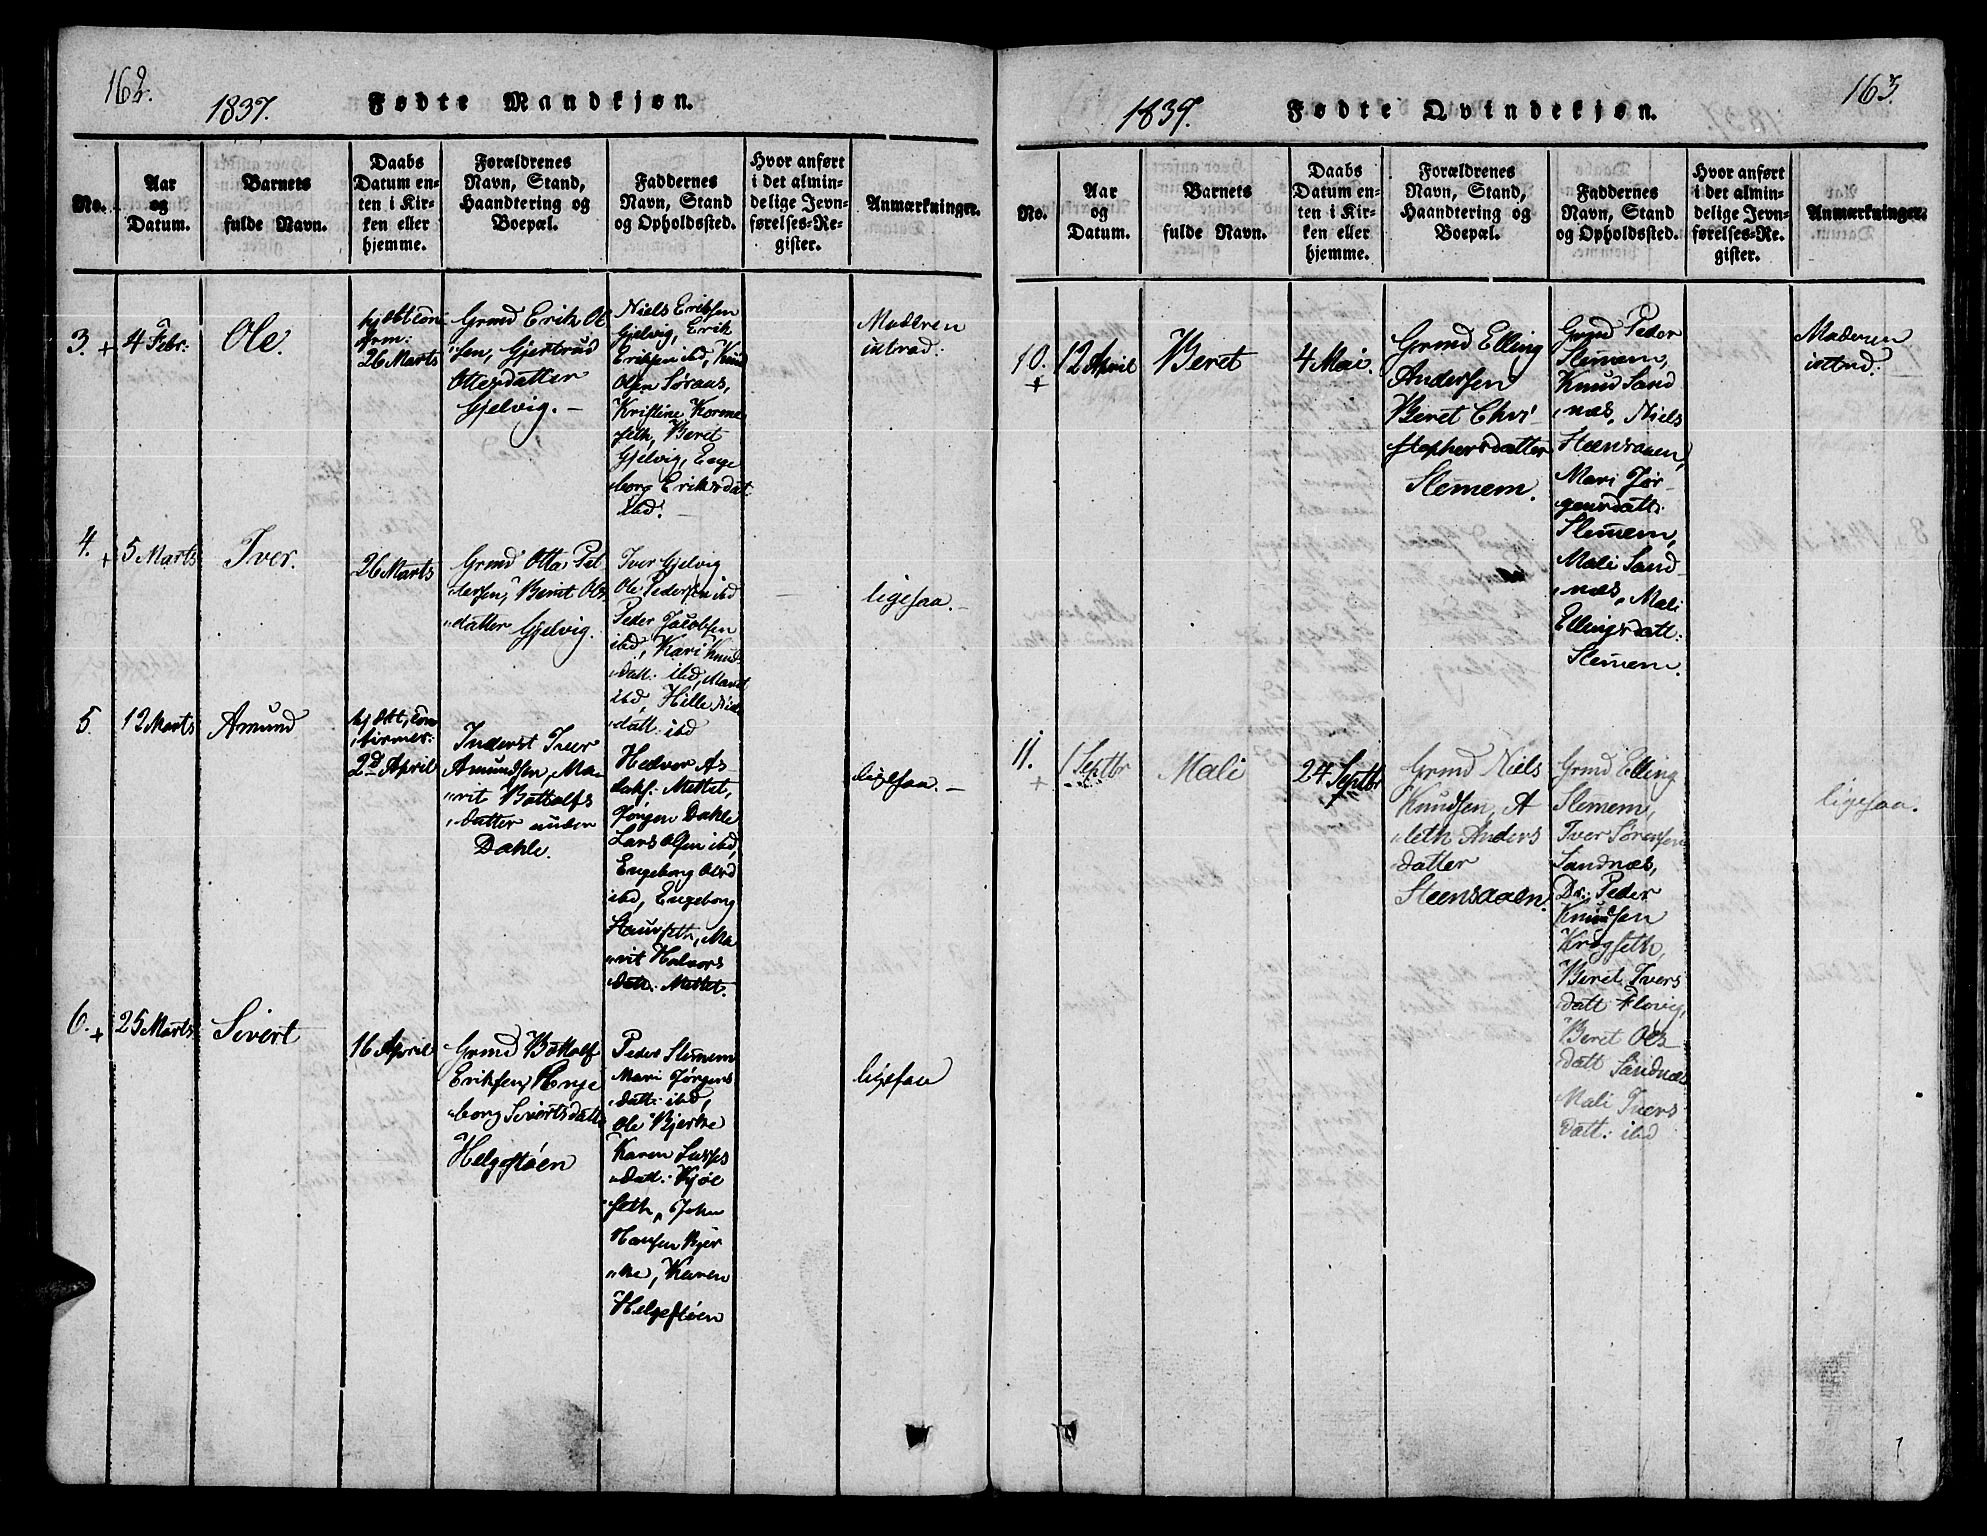 162.
1837.
Fødte Mandkjøn.
No.
Aar
og
Datum.
Barnets
fulde Navn.
Daabs
Datum en-
ten i Kir-
ken eller
hjemme.
Forældrenes
Navn, Stand,
Haandtering og
Boepæl.
Faddernes
Navn, Stand
og Opholdssted.
Hvor anført
i det almin-
delige Jevn-
førelses-Re-
gister.
Anmærkninger.
3. +
4 Febr:
Ole.
hjdøbt con-
firm:
26 Marts
Grmd Erik Ol
sen, Gjertrud
Ottesdatter
Gjelvig. -
Niels Eriksen
Gjelvig, Erik
Eriksen ibd, Knud
Olsen Søraas,
Kristine Korme
seth, Beret
Gjelvig, Enge
borg Eriksdat
ibd.
Moderen
introd:
4. +
5 Marts
Iver.
26 Marts
Grmd Otto Pet
tersen, Berit Ols
datter Gjelvig.
Iver Gjelvig
Ole Pedersen ibd
Peder Jacobsen
ibd, Kari Knud
datt: ibd, Marit
ibd, Hille
datt: ibd
ligesaa. -
5.
12 Marts
Amund
2d April
Inderst Iver
Amundsen, Ma-
rit Bottolfs
datter under
Dahle.
Halvor As
laks: Mettet,
Jørgen Dahle
Lars Olsen ibd,
Engeborg Olsd
ibd, Engeborg
Staurseth, Ma
rit Halvors
datt: Mettet.
ligesaa. -
6. +
25 Marts
Sivert
16 April
Grmd Bottolf
Eriksen, Enge
borg Sivertsdatt
Helgestøen
Peder Slemem
Mari Jørgens
datt: ibd,
Ole Bjerke
Karen Lasses
datt: Kjøl
seth, John
Hansen Bjer
ke, Karen
Helgestøen
ligesaa
163.
1837.
Fødte Qvindekjøn.
No.
Aar
og
Datum.
Barnets
fulde Navn.
Daabs
Datum en-
ten i Kir-
ken eller
hjemme.
Forældrenes
Navn, Stand,
Haandtering og
Boepæl.
Faddernes
Navn, Stand
og Opholdssted.
Hvor anført
i det almin-
delige Jevn-
førelses-Re-
gister.
Anmærkninger.
10. +
12 April
Beret
4 Mai
Grmd Elling
Andersen
Beret Chri
stophersdatter
Slemem.
Grmd Peder
Slemem,
Knud Sand
næs, Niels
Steensaaen,
Mari Jør
gensdatt:
Slemem,
Mali Sand
næs, Mali
Ellingsdatt:
Slemem.
Moderen
introd:
11. +
1 Septbr
Mali
24 Septbr
Grmd Niels
Knudsen, A
leth Anders
datter
Steensaaen.
Grmd Elling
Slemem,
Iver Sørensen
Sandnæs,
Dr: Peder
Knudsen
Krogseth,
Beret Ivers
datt Flovig,
Beret Ols
datt Sandnæs
Mali Ivers
datt: ibd
ligesaa.